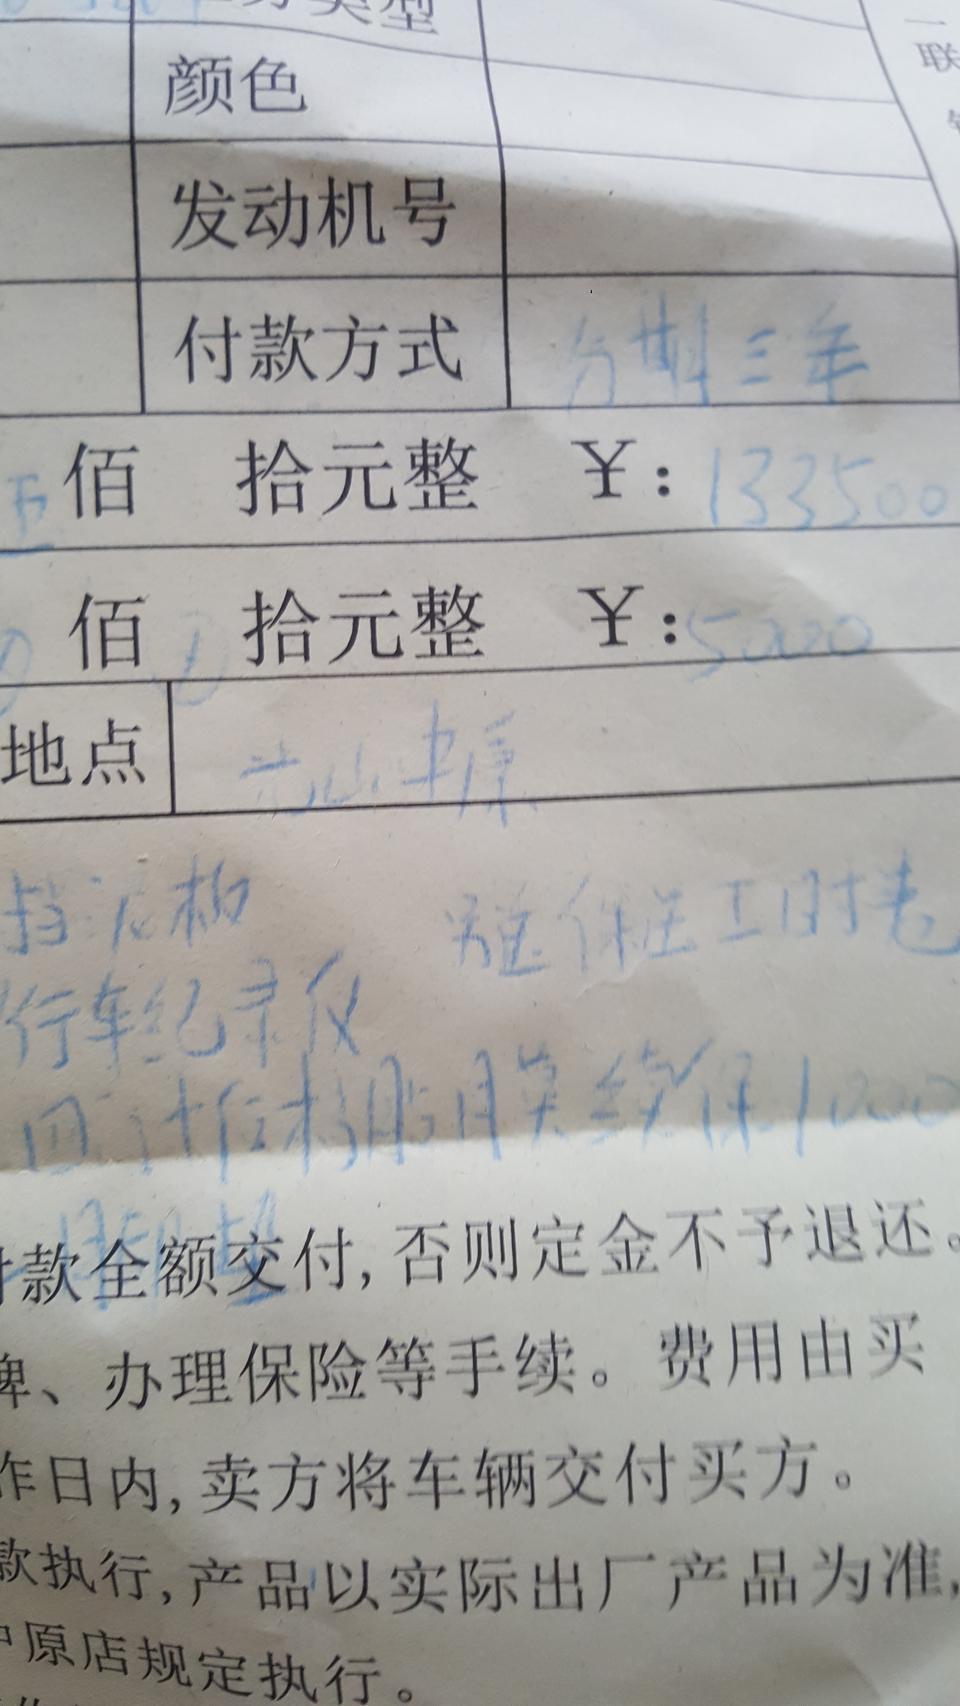 类型
一
联
颜色
发动机号
付款方式 分期三年
五佰 拾元整 ¥:133500
佰 拾元整 ¥:5000
地点 光山中原
挡泥板 送保送工时
行车纪录仪
续保1000
款全额交付,否则定金不予退还。
牌、办理保险等手续。费用由买
作日内,卖方将车辆交付买方。
款执行,产品以实际出厂产品为准,
中原店规定执行。